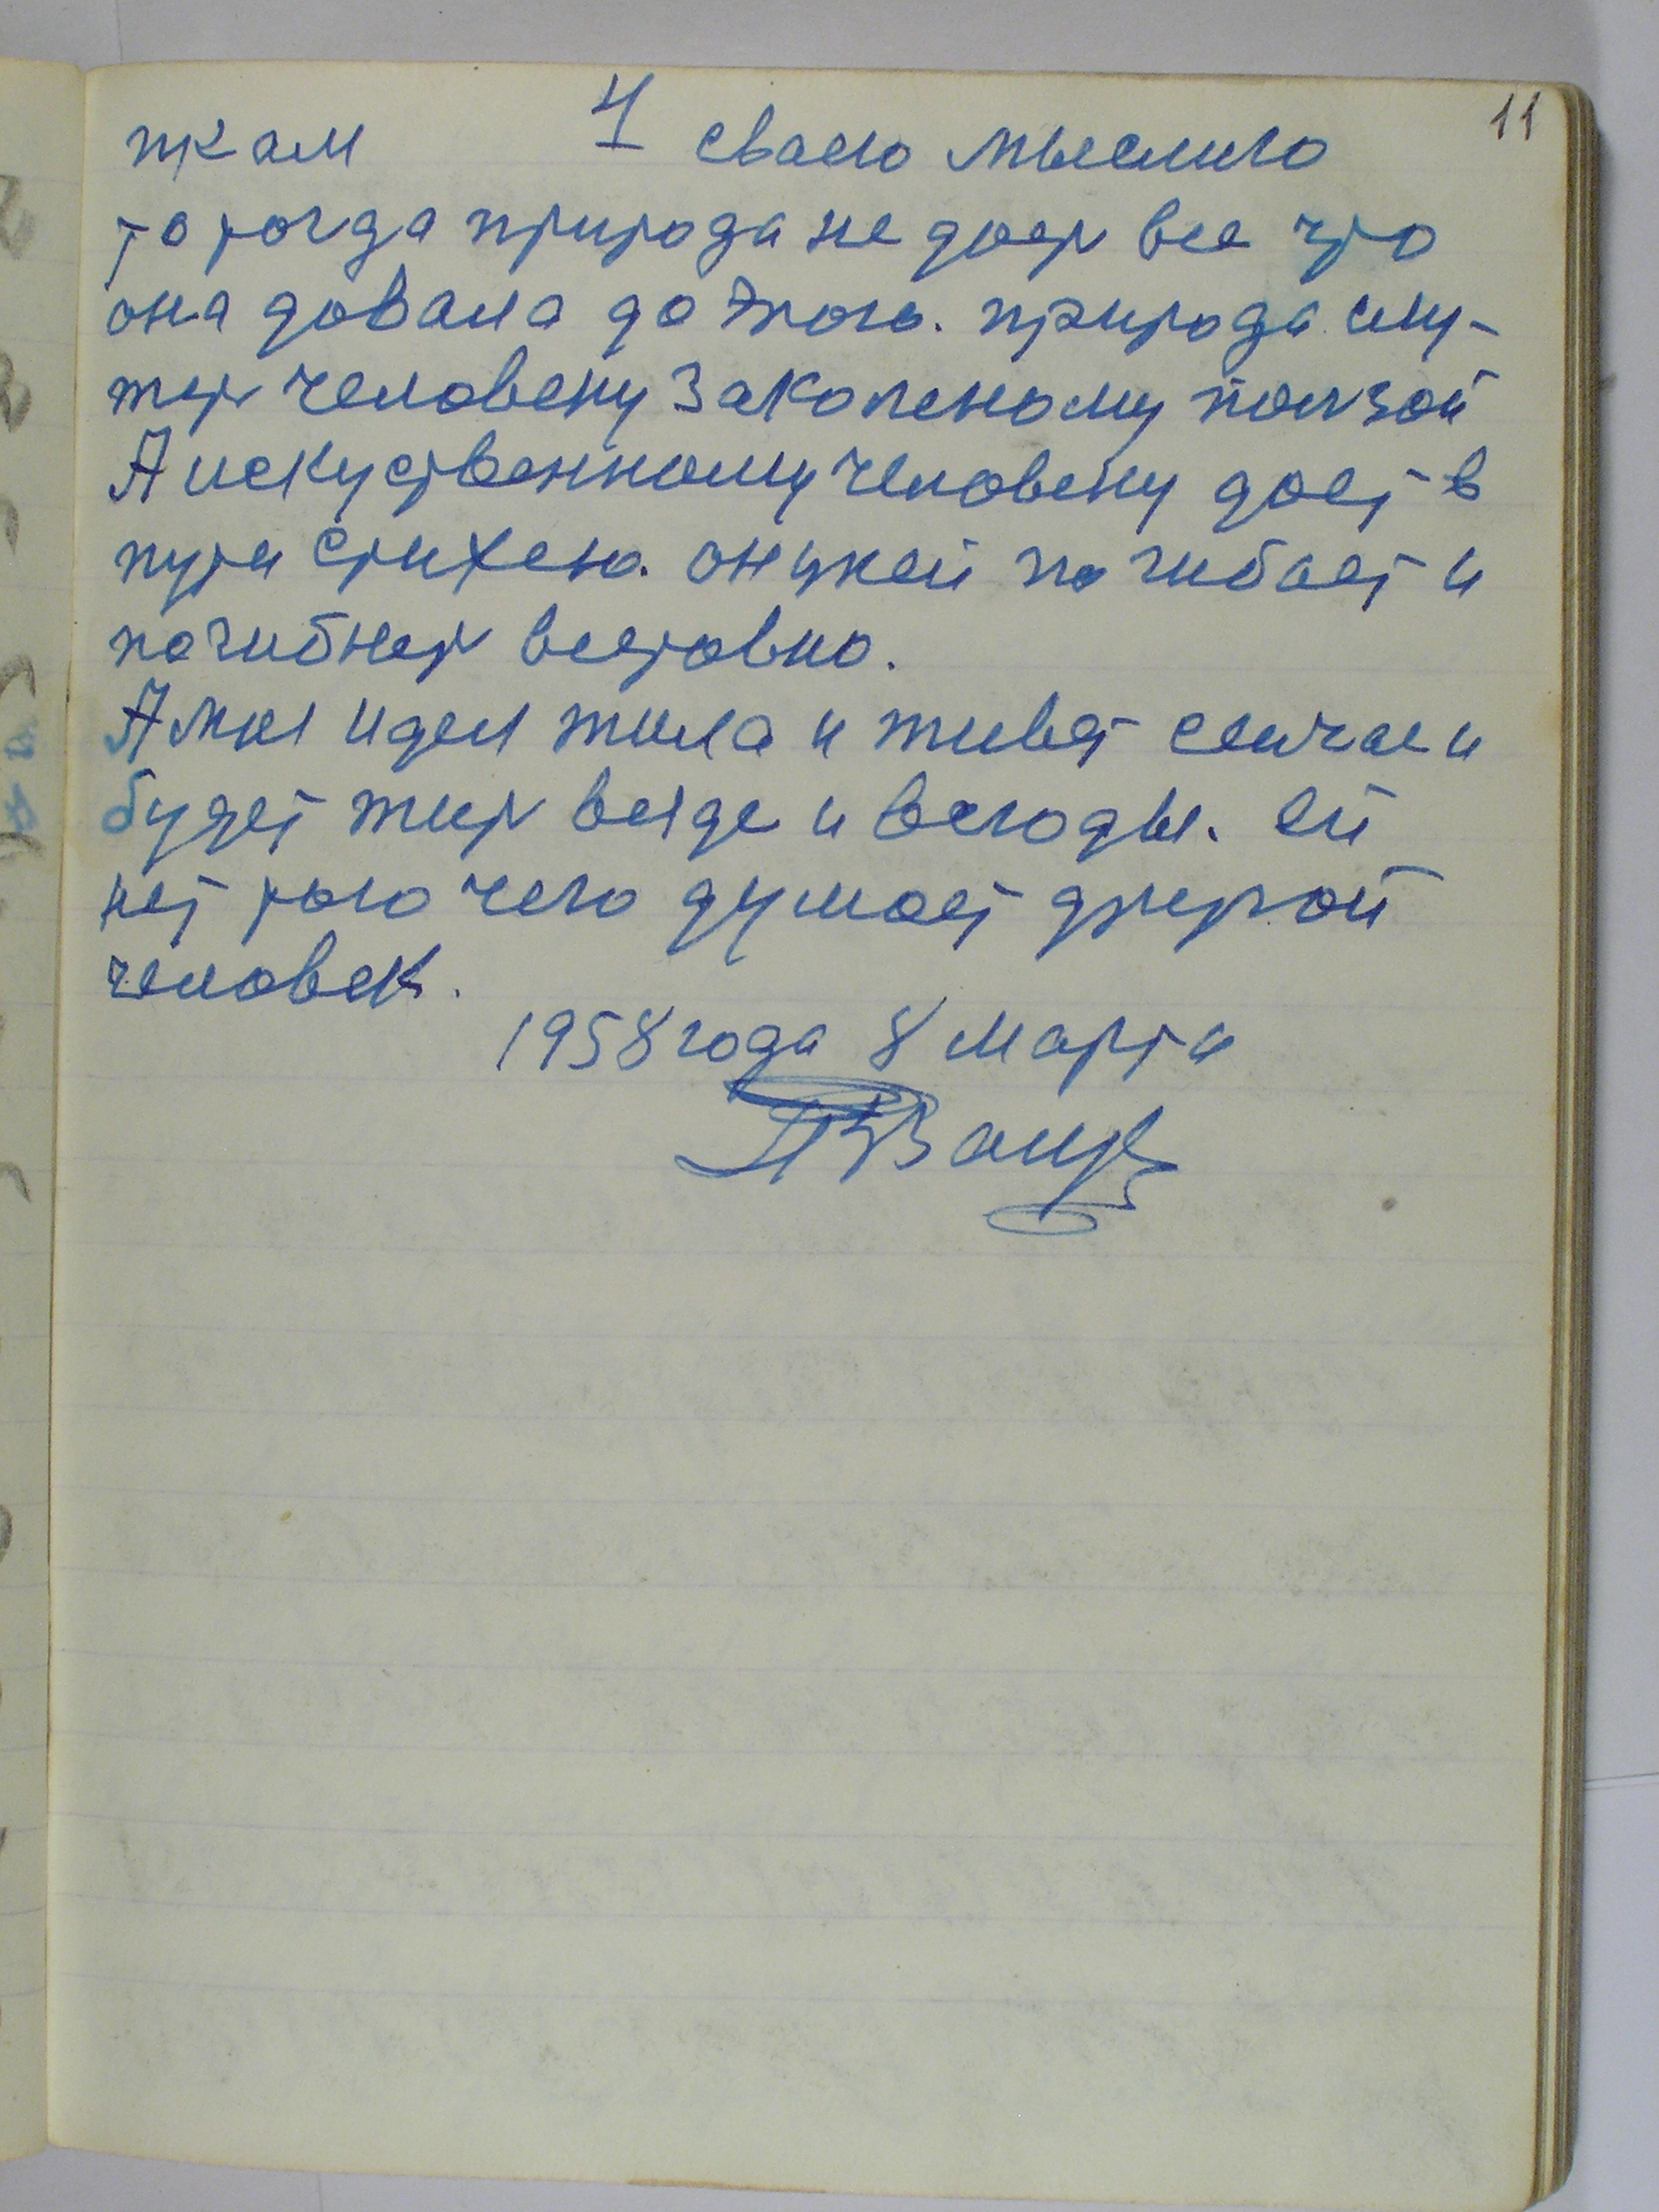 11
4
пкам сваею мыслию
то тогда природа не дает все что
она довала до этого. природа слу-
жит человеку законеному ползой
А искуственному человеку дает в
пути стихею. он у ней погибает и
погибнет всеровно.
А моя идея жила и живет сеичас и
будет жит везде и всегоды. ей
нет того чего думает другой
человек.
1958 года 8 марта